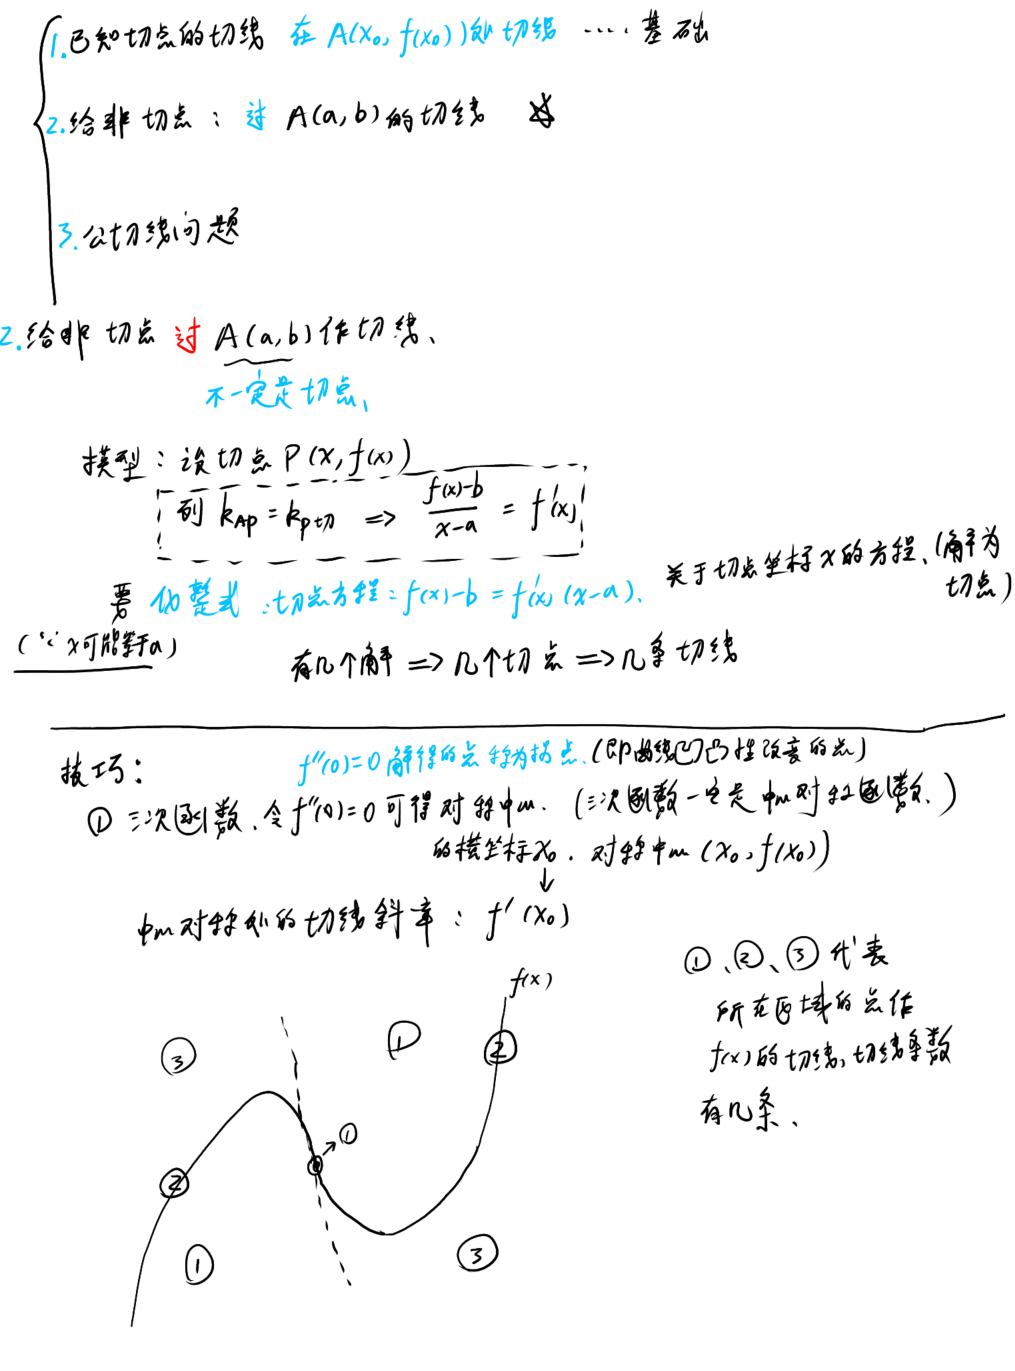 1.已知切点的切线 在A(x₀, f(x₀))处切线 ···· 基础
2.给非切点：过 A(a,b)的切线 ☆
3.公切线问题
2.给非切点 过 A(a,b)作切线、
不一定是切点、
模型：设切点 P(x, f(x))
列 k_AP = k_P切 => (f(x)-b)/(x-a) = f'(x)
关于切点坐标x的方程、(解为切点)
要 化整式：切点方程：f(x)-b = f'(x)(x-a).
(∵x可能等于a)
有几个解 => 几个切点 => 几条切线
技巧：
f''(0)=0 解得的点称为拐点.(即曲线凹凸性改变的点)
① 三次函数、令f''(0)=0可得对称中心. (三次函数一定是中心对称函数、)
的横坐标x₀. 对称中心 (x₀, f(x₀))
↓
中心对称处的切线斜率：f'(x₀)
f(x)
③ ① ②
①
②
① ③
①、②、③代表
所在区域的点作
f(x)的切线,切线条数
有几条、